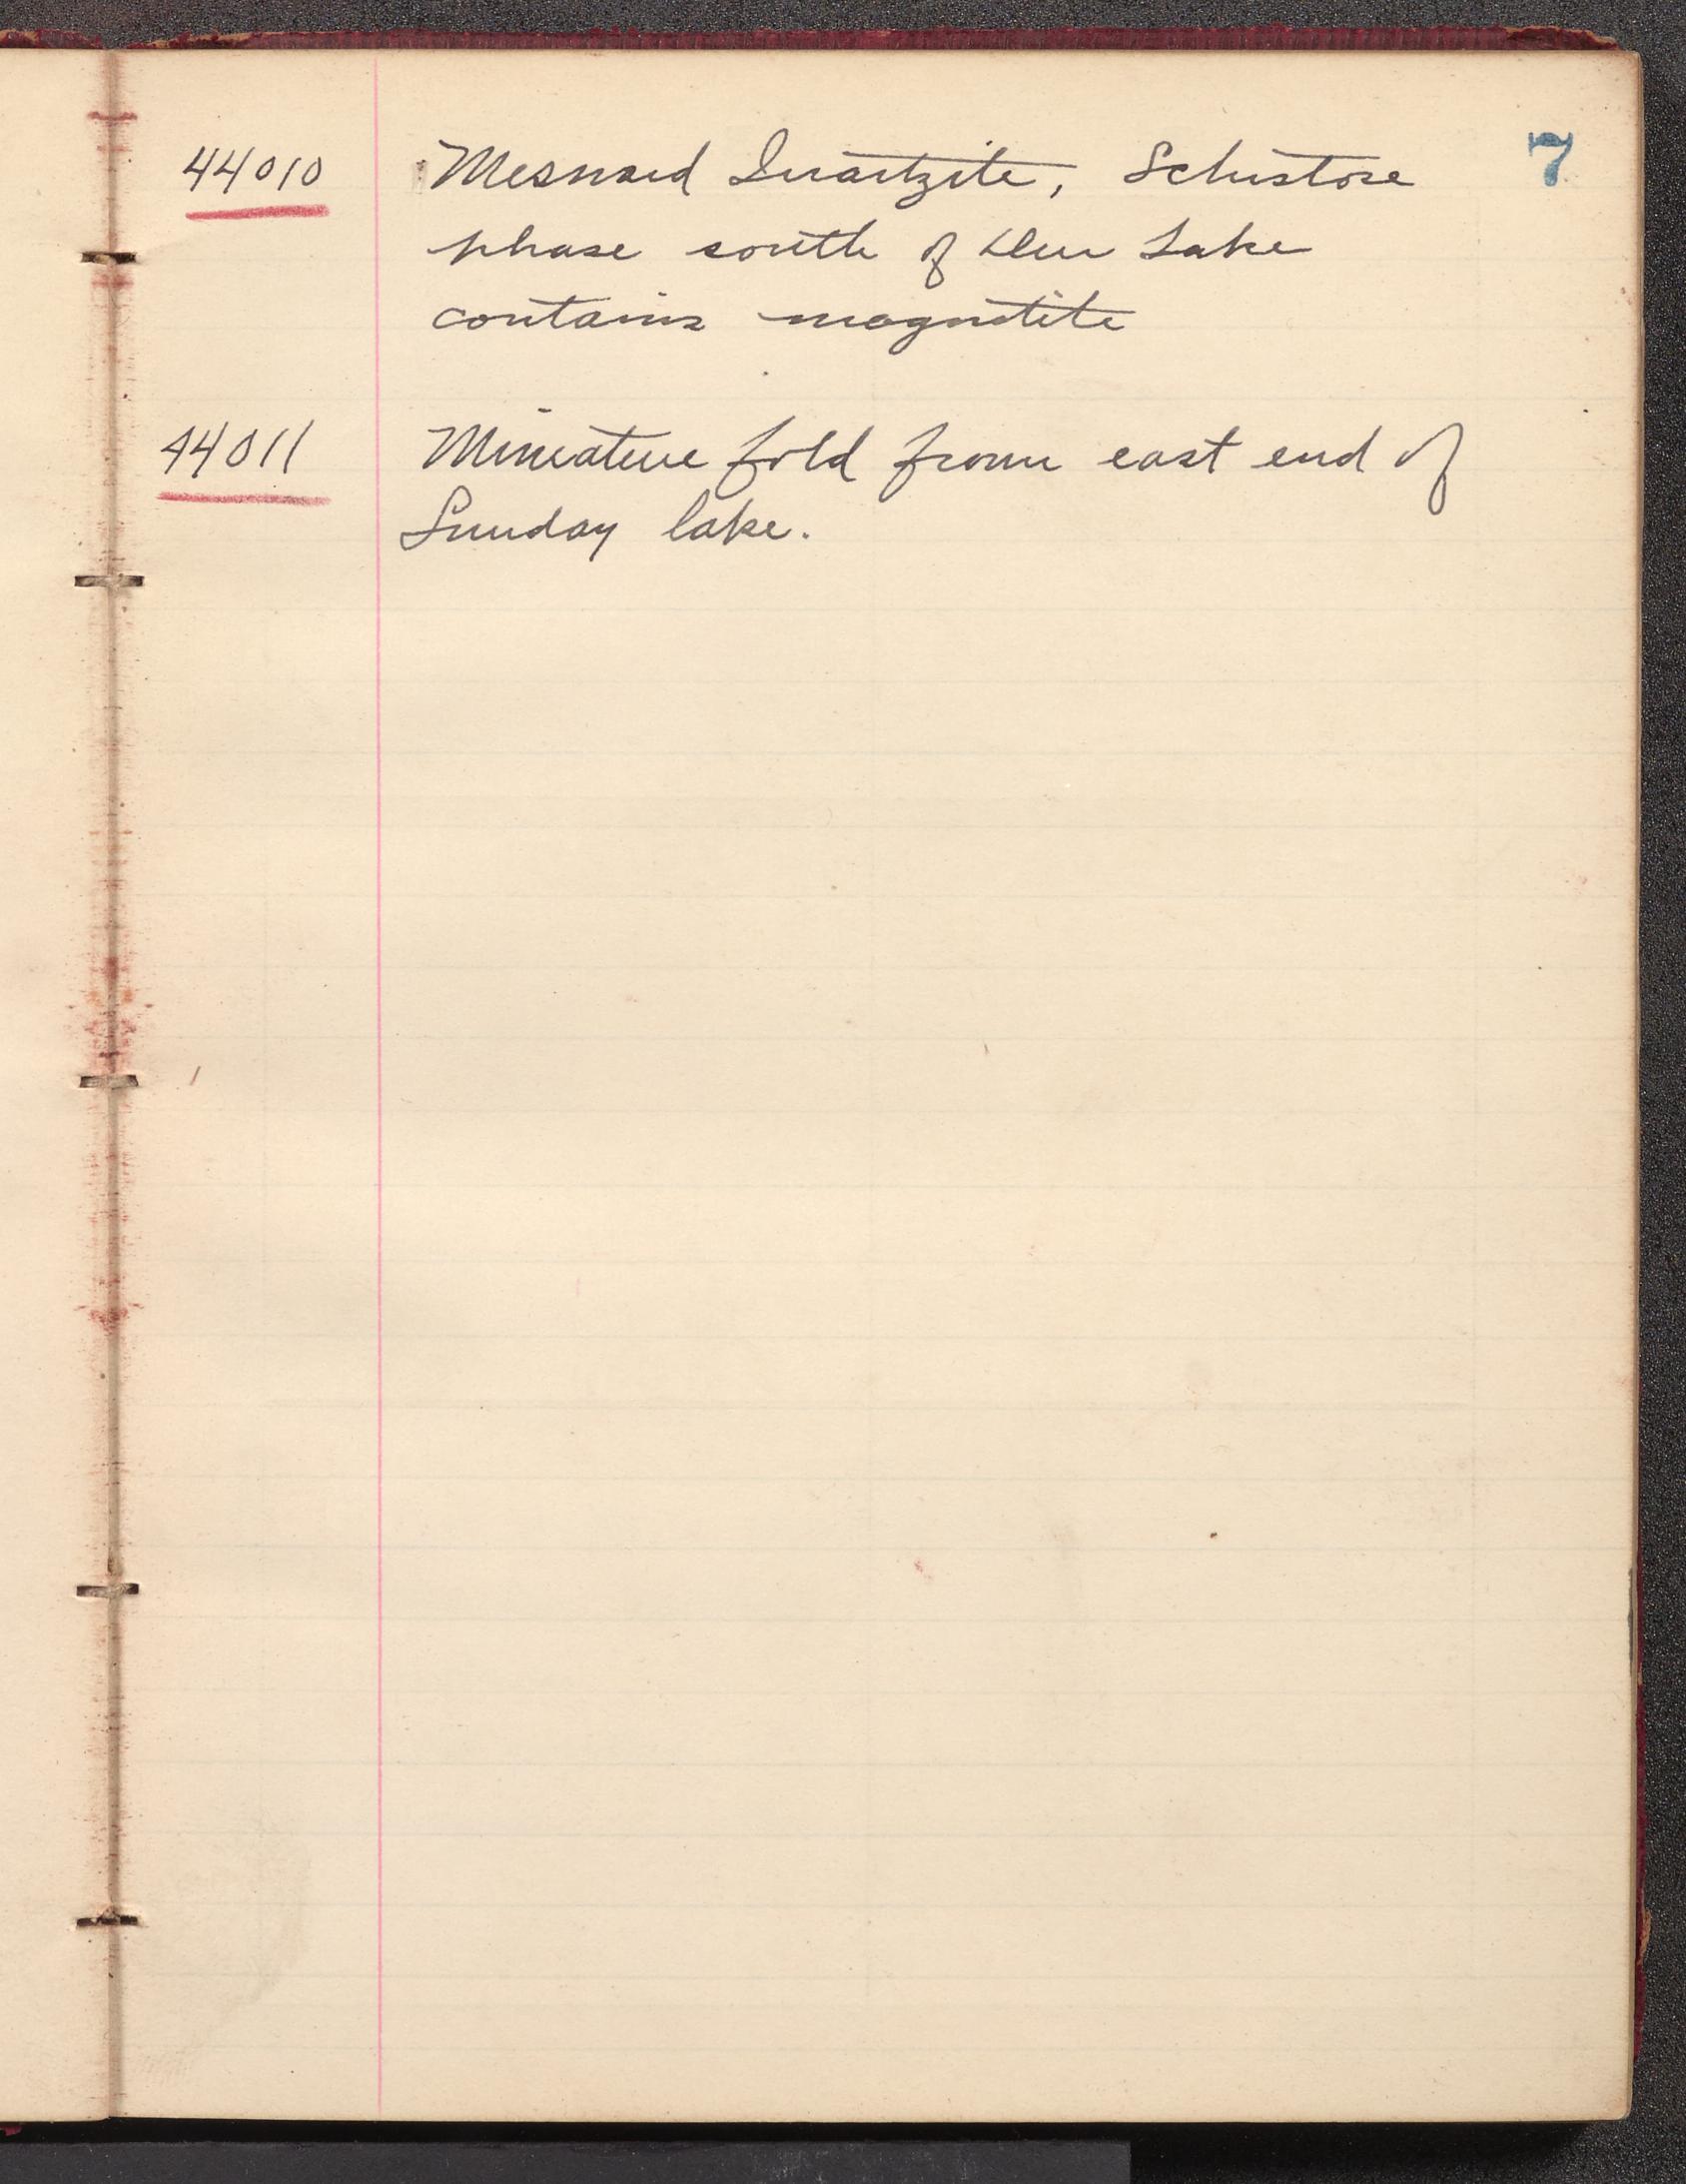 7
44010 Mesnard Quartzite, Schistose
phase south of Deer Lake
contains magnetite
44011 Miniature fold from east end of
Sunday lake.